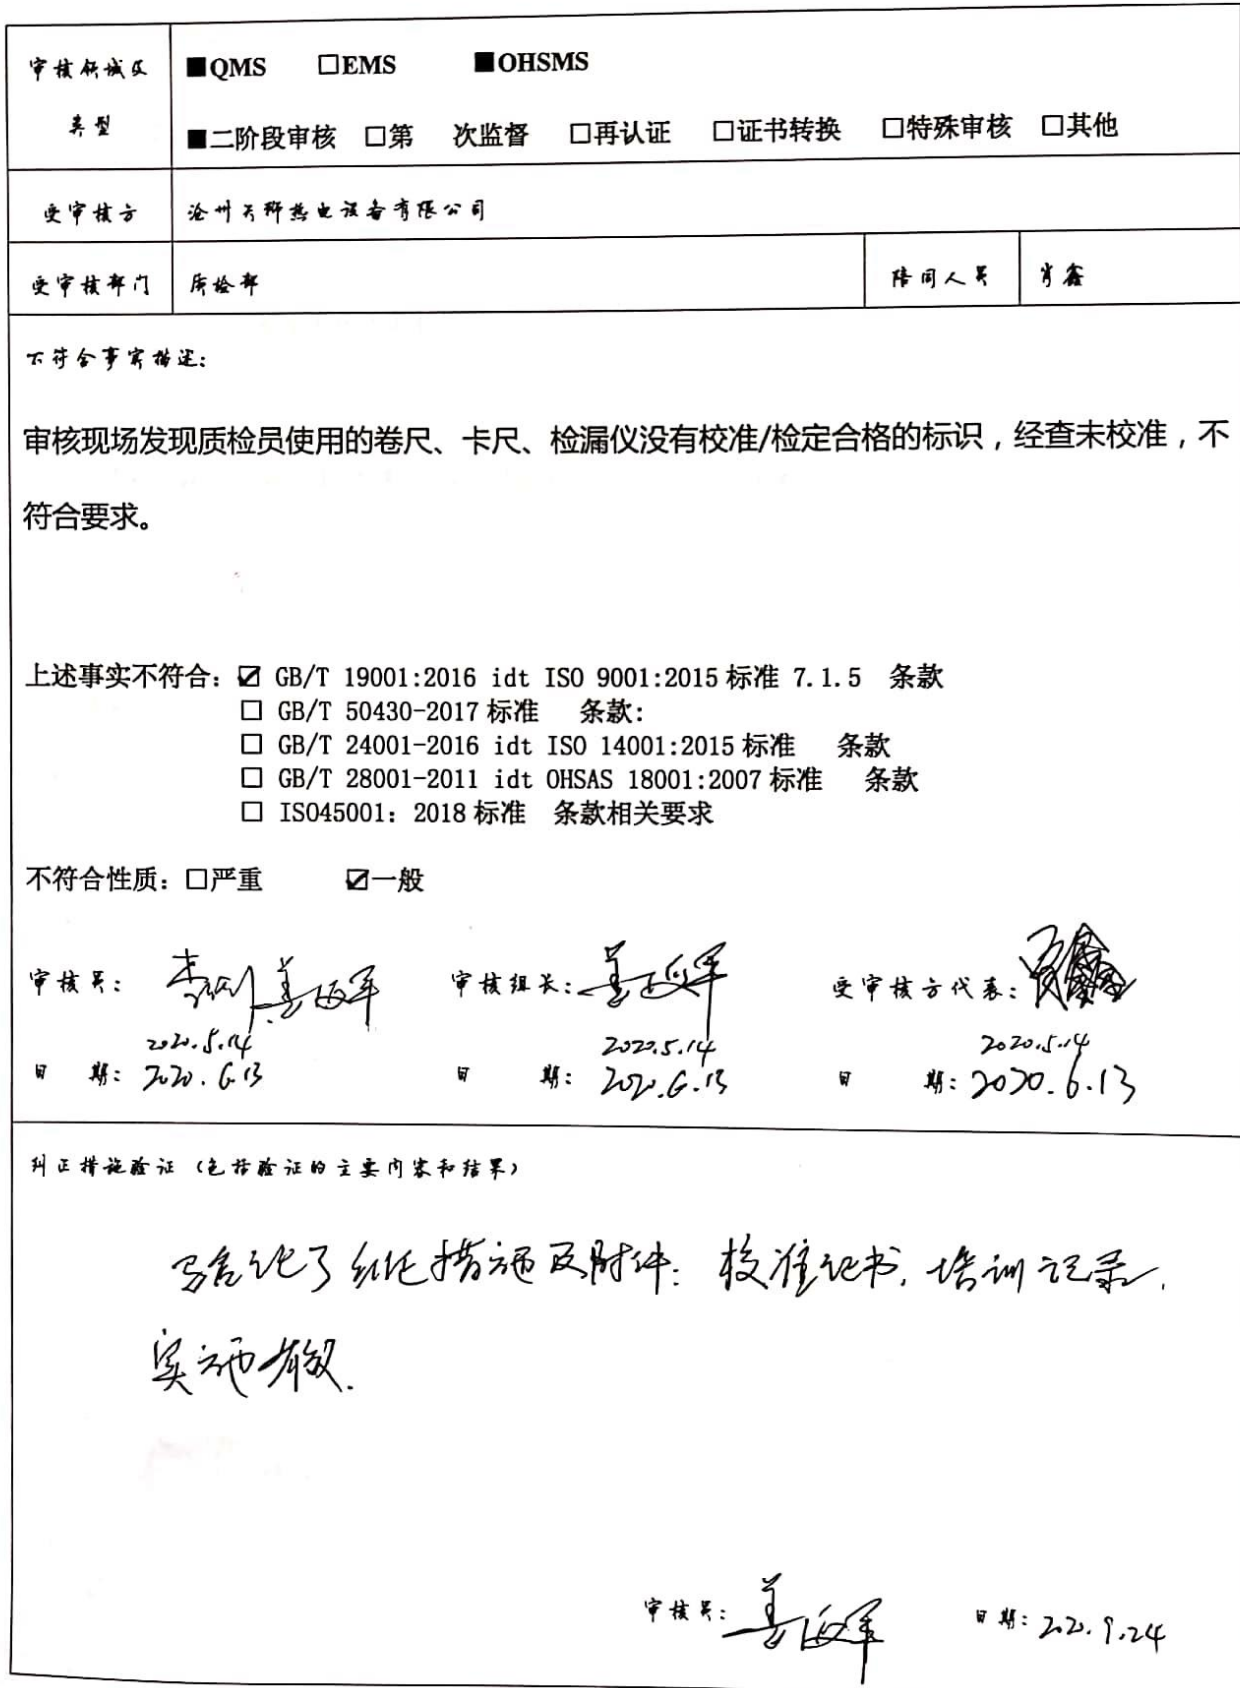 审核领域及类型
■QMS □EMS ■OHSMS
■二阶段审核 □第 次监督 □再认证 □证书转换 □特殊审核 □其他
受审核方 沧州天硕热电设备有限公司
受审核部门 质检部 陪同人员 肖鑫
不符合事实描述:
审核现场发现质检员使用的卷尺、卡尺、检漏仪没有校准/检定合格的标识，经查未校准，不
符合要求。
上述事实不符合: ☑ GB/T 19001:2016 idt ISO 9001:2015 标准 7.1.5 条款
□ GB/T 50430-2017 标准 条款:
□ GB/T 24001-2016 idt ISO 14001:2015 标准 条款
□ GB/T 28001-2011 idt OHSAS 18001:2007 标准 条款
□ ISO45001: 2018 标准 条款相关要求
不符合性质: □严重 ☑一般
审核员: 审核组长: 受审核方代表:
2020.5.14 2020.5.14 2020.5.14
日 期: 2020.6.13 日 期: 2020.6.13 日 期: 2020.6.13
纠正措施验证（包括验证的主要内容和结果）
验证了纠正措施及附件: 校准证书, 培训记录,
实施有效.
审核员: 日期: 2020.9.24